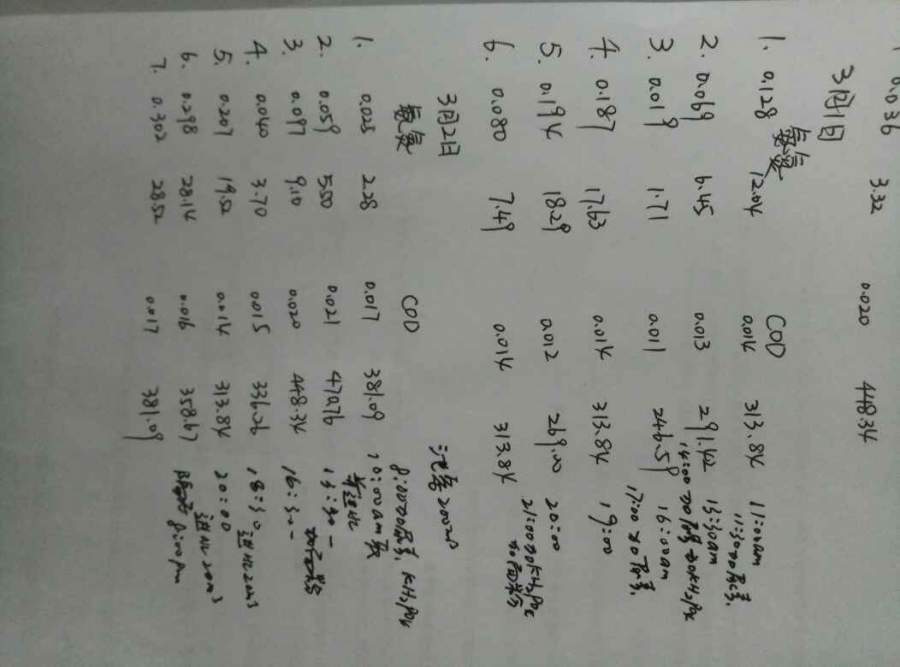 0.036 3.32 0.020 448.34
3月1日
氨氮 COD
1. 0.128 12.04 0.014 313.84 11:00am
11:30加尿素,
2. 0.069 6.45 0.013 291.42 13:30am
14:00加尿素加KH2PO4
3. 0.019 1.71 0.011 246.59 16:00am
17:00加尿素,
4. 0.187 17.63 0.014 313.84 19:00
5. 0.194 18.29 0.012 269.00 20:00
21:00加KH2PO4
6. 0.080 7.49 0.014 313.84 加面粉
3月2日 池容200m3
氨氮 COD 8:00加尿素, KH2PO4
1. 0.025 2.28 0.017 381.09 10:00am
2. 0.059 5.50 0.021 470.76 13:30
3. 0.097 9.10 0.020 448.34 16:30
4. 0.040 3.70 0.015 336.26 18:30 进水2m3
5. 0.207 19.52 0.014 313.84 20:00
进水20m3
6. 0.298 28.14 0.016 358.67 8:00pm
7. 0.302 28.52 0.017 381.09